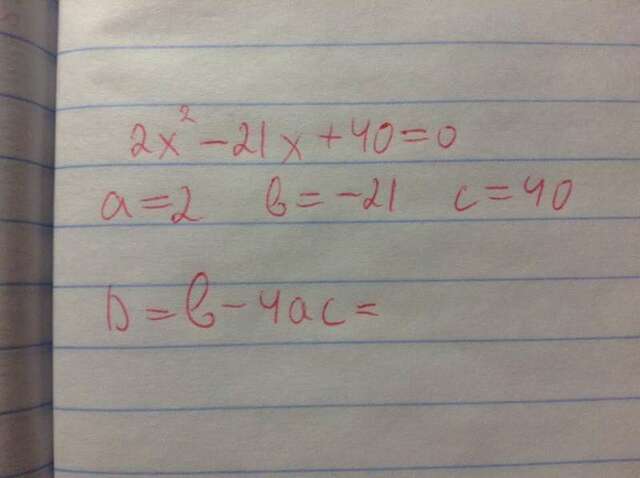 2x² - 21x + 40 = 0
a = 2 b = -21 c = 40
D = b - 4ac =